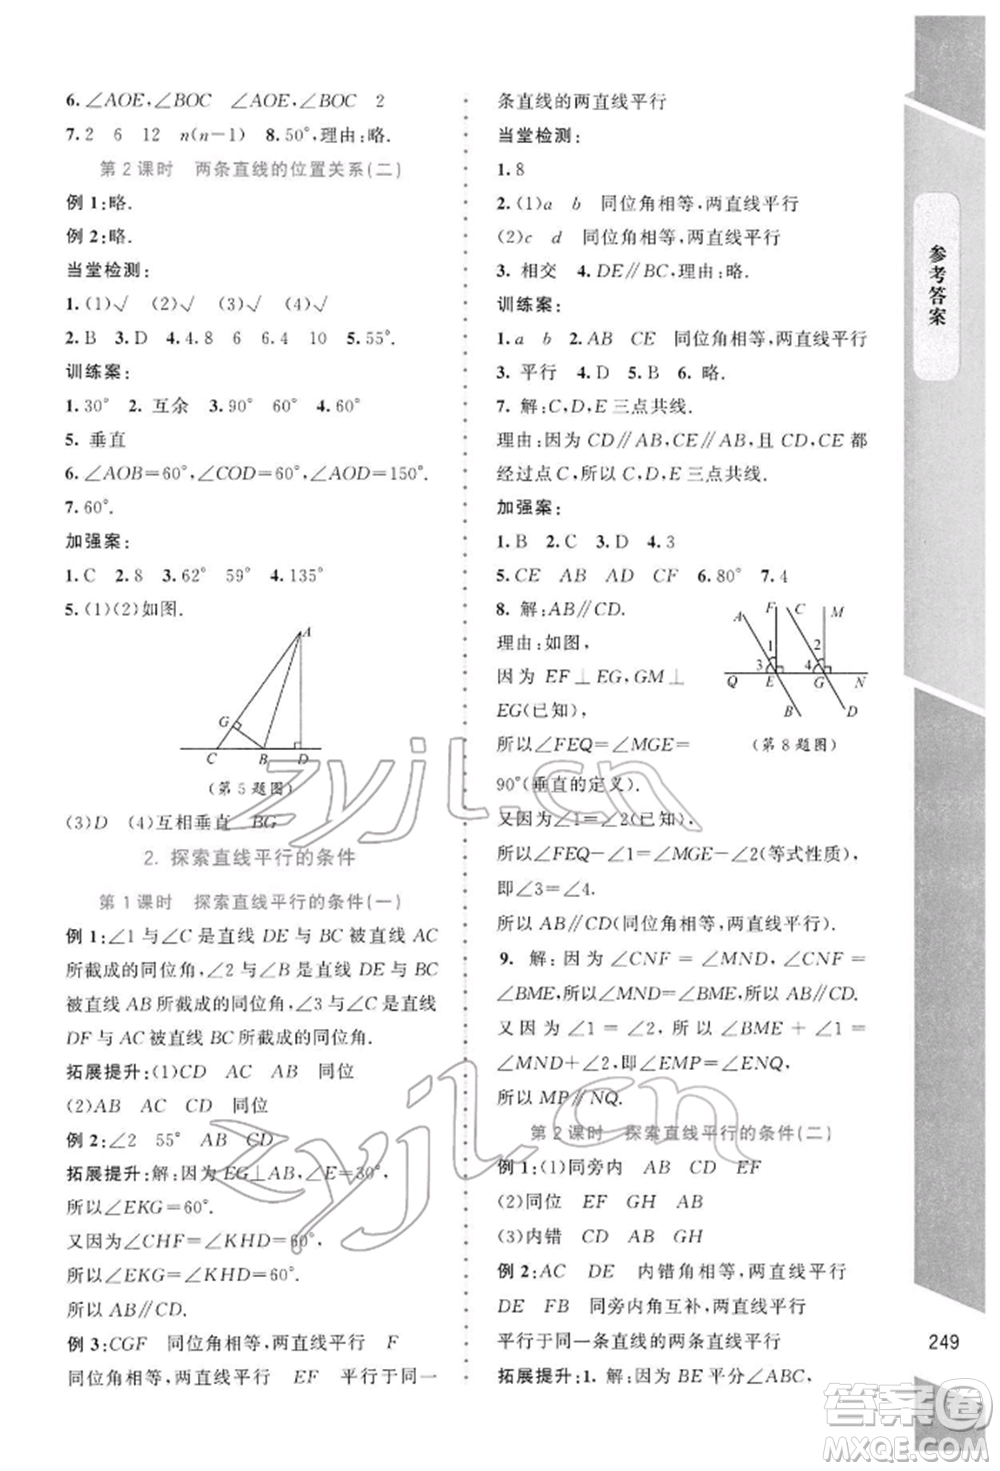 6.∠AOE,∠BOC ∠AOE,∠BOC 2
7.2 6 12 n(n-1) 8.50°,理由:略.
第2课时 两条直线的位置关系(二)
例1:略.
例2:略.
当堂检测:
1.(1)√ (2)√ (3)√ (4)√
2.B 3.D 4.8 6 6.4 10 5.55°
训练案:
1.30° 2.互余 3.90° 60° 4.60°
5.垂直
6.∠AOB=60°,∠COD=60°,∠AOD=150°.
7.60°.
加强案:
1.C 2.8 3.62° 59° 4.135°
5.(1)(2)如图.
A
G
C B D
(第5题图)
(3)D (4)互相垂直 BG
2. 探索直线平行的条件
第1课时 探索直线平行的条件(一)
例1:∠1与∠C是直线DE与BC被直线AC
所截成的同位角,∠2与∠B是直线DE与BC
被直线AB所截成的同位角,∠3与∠C是直线
DF与AC被直线BC所截成的同位角.
拓展提升:(1)CD AC AB 同位
(2)AB AC CD 同位
例2:∠2 55° AB CD
拓展提升:解:因为EG⊥AB,∠E=30°,
所以∠EKG=60°.
又因为∠CHF=∠KHD=60°,
所以∠EKG=∠KHD=60°.
所以AB∥CD.
例3:CGF 同位角相等,两直线平行 F
同位角相等,两直线平行 EF 平行于同一
条直线的两直线平行
当堂检测:
1.8
2.(1)a b 同位角相等,两直线平行
(2)c d 同位角相等,两直线平行
3.相交 4.DE∥BC,理由:略.
训练案:
1.a b 2.AB CE 同位角相等,两直线平行
3.平行 4.D 5.B 6.略.
7.解:C,D,E三点共线.
理由:因为CD∥AB,CE∥AB,且CD,CE都
经过点C,所以C,D,E三点共线.
加强案:
1.B 2.C 3.D 4.3
5.CE AB AD CF 6.80° 7.4
8.解:AB∥CD.
理由:如图,
因为EF⊥EG,GM⊥
EG(已知),
所以∠FEQ=∠MGE=
90°(垂直的定义).
A F C M
1 2
3 4
Q E G N
B D
(第8题图)
又因为∠1=∠2(已知),
所以∠FEQ-∠1=∠MGE-∠2(等式性质),
即∠3=∠4.
所以AB∥CD(同位角相等,两直线平行).
9.解:因为∠CNF=∠MND,∠AME=
∠BME,∠CNF=∠BME,所以∠MND=∠BME,所以AB∥CD.
又因为∠1=∠2,所以∠BME+∠1=
∠MND+∠2,所以∠EMP=∠ENQ.
所以MP∥NQ.
第2课时 探索直线平行的条件(二)
例1:(1)同旁内 AB CD EF
(2)同位 EF GH AB
(3)内错 CD EF GH
例2:AC DE 内错角相等,两直线平行
DE FB 同旁内角互补,两直线平行
平行于同一条直线的两条直线平行
拓展提升:1.解:因为BE平分∠ABC,
参考答案
249
zyjl.cn
zyjl.cn
答案圈
MXQE.COM